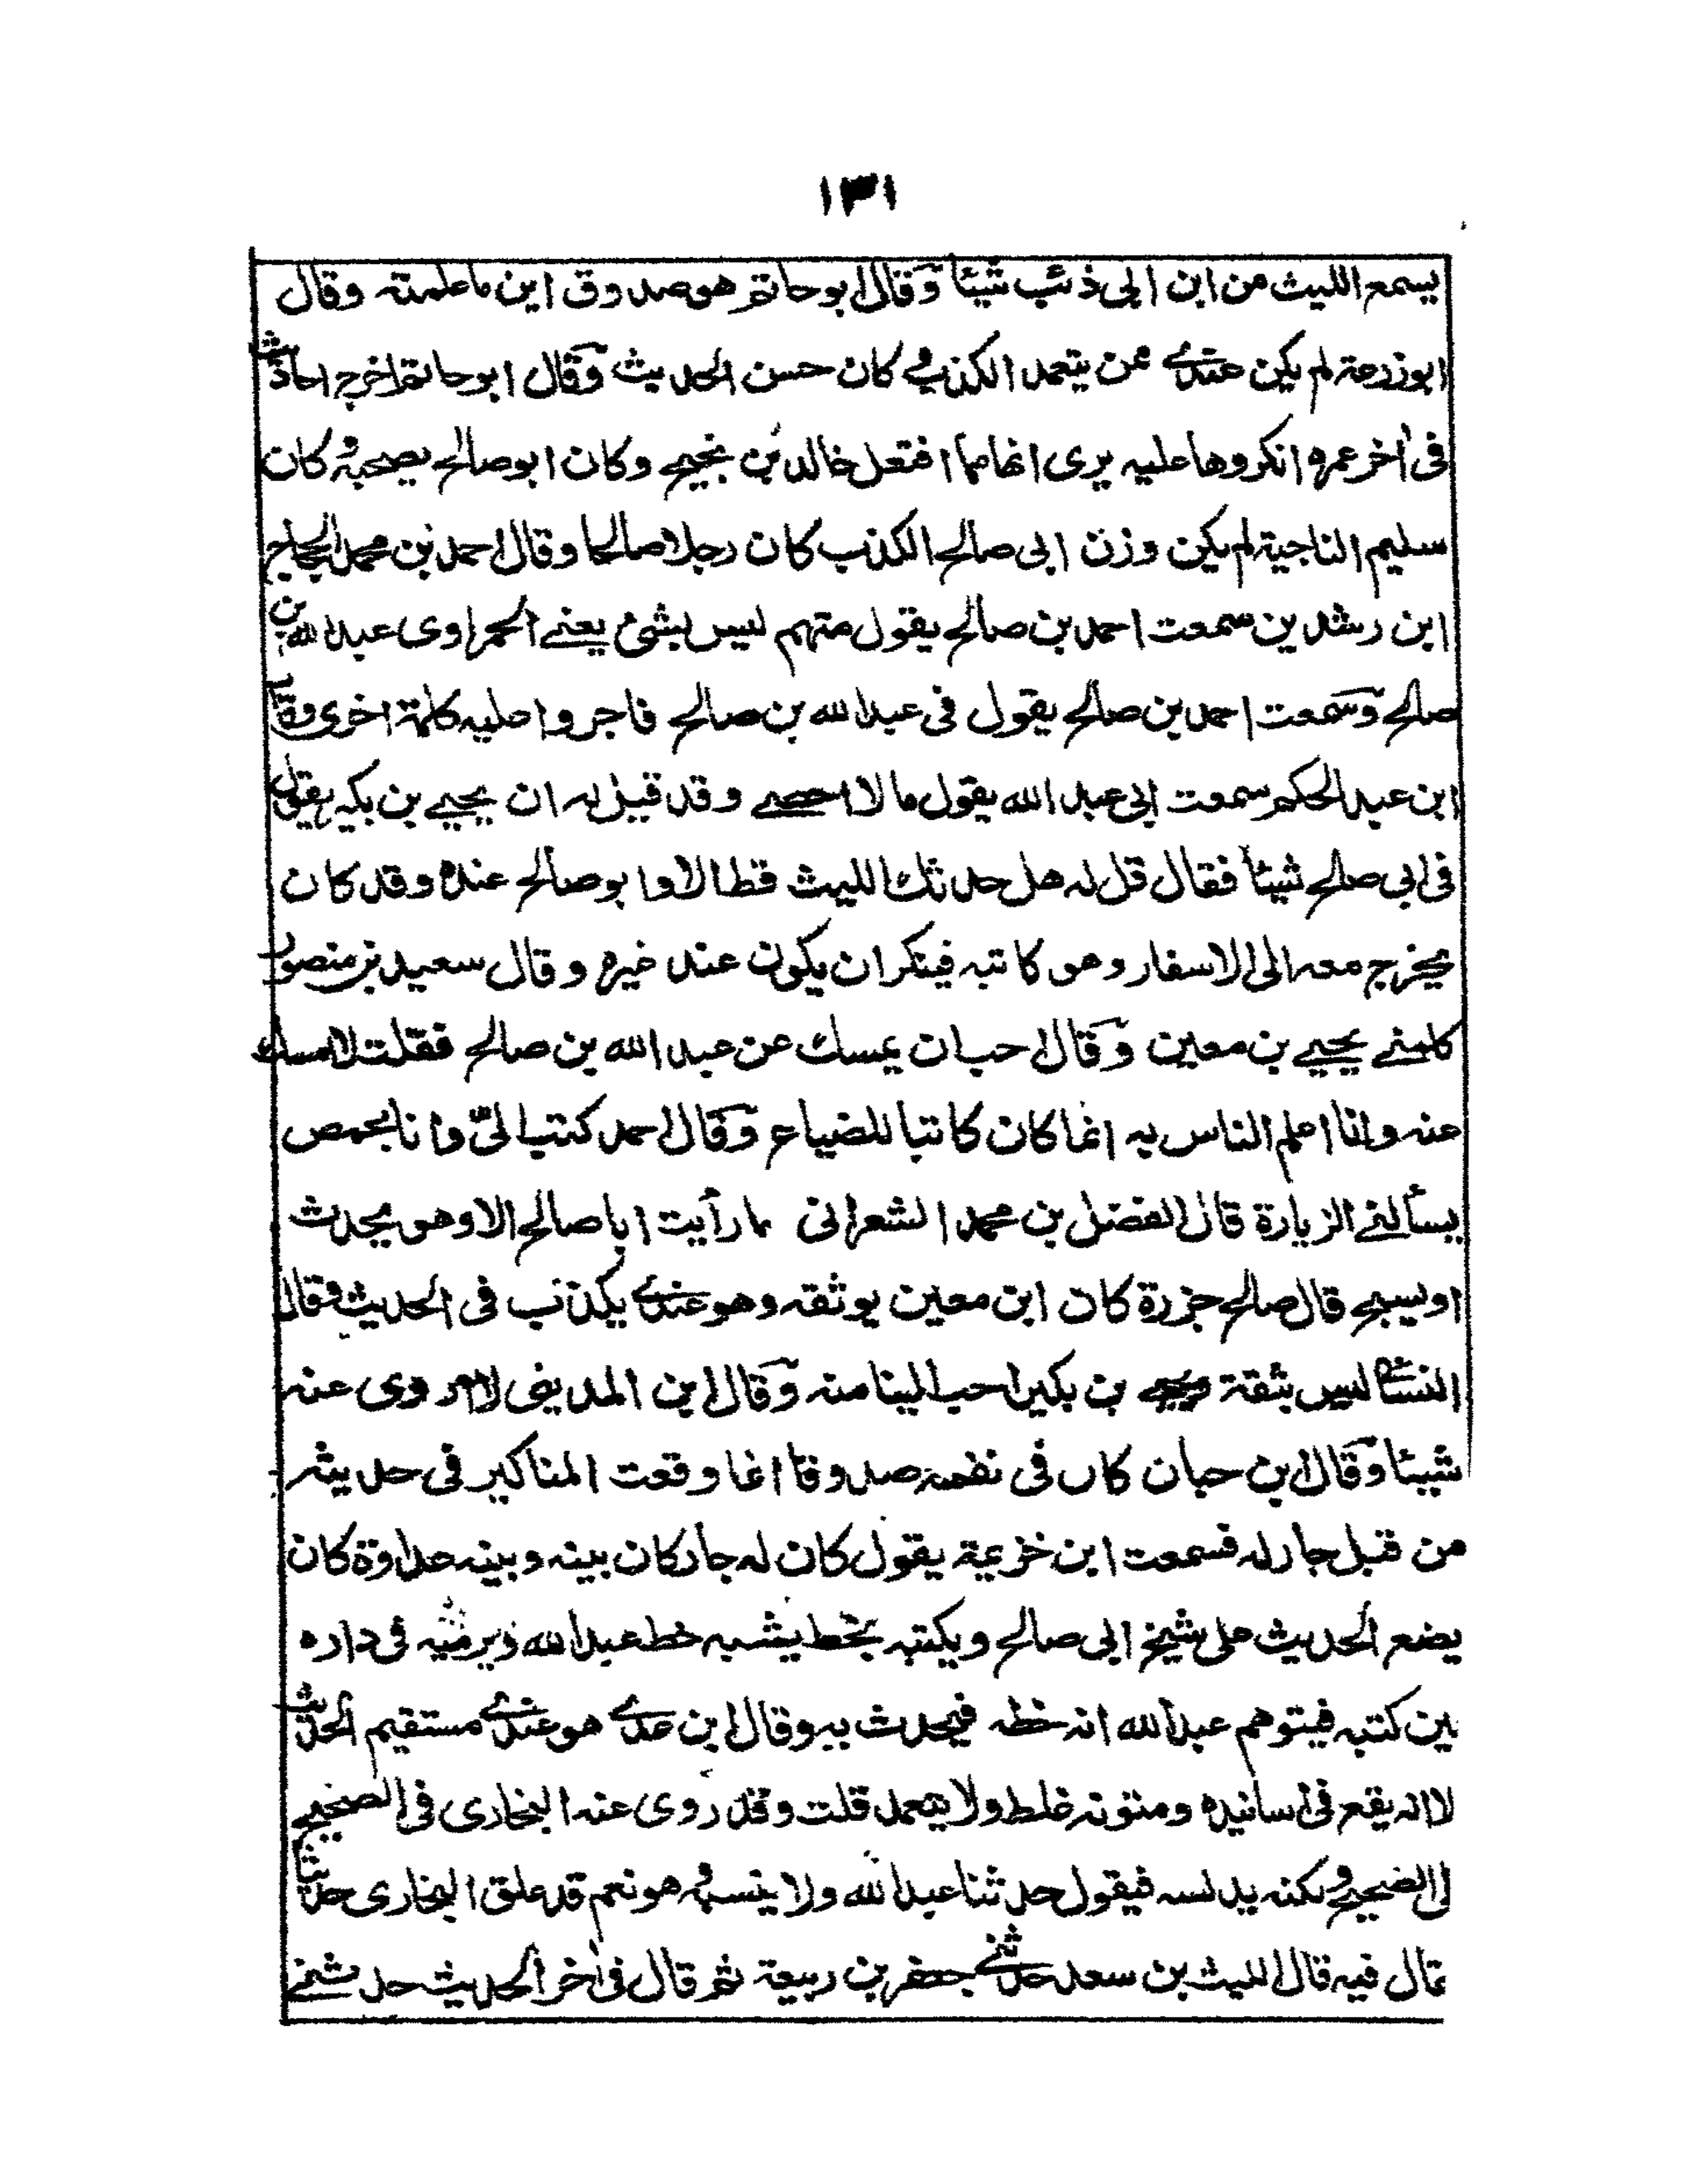 ١٣١
يسمع الليث من ابن ابى ذئب شيئا وقال ابو حاتم هو صدوق اين ما علمته وقال
ابوزرعة لم يكن عندى ممن يتعمد الكذب وكان حسن الحديث وقال ابو حاتم اخرج احاديث
فى أخر عمره انكروها عليه يرى انها مما افتعل خالد بن نجيح وكان ابو صالح يصحبه وكان
سليم الناجية لم يكن وزن ابى صالح الكذب كان رجلا صالحا وقال احمد بن محمد الحجاج
ابن رشدين سمعت احمد بن صالح يقول متهم ليس بشئ يعنى الحمراوى عبد الله بن
صالح وسمعت احمد بن صالح يقول فى عبد الله بن صالح فاجروا عليه كلمة اخرى وقال
ابن عبد الحكم سمعت ابى عبد الله يقول ما لا احصى وقد قيل له ان يحيى بن بكير يقول
فى ابى صالح شيئا فقال قل له هل حدثك الليث قط الا وابو صالح عنده وقد كان
يخرج معه الى الاسفار وهو كاتبه فينكر ان يكون عند غيره وقال سعيد بن منصور
كلمنى يحيى بن معين وقال احب ان يمسك عن عبد الله بن صالح فقلت لا امسك
عنه وانا اعلم الناس به انما كان كاتبا للضياع وقال احمد كتب الىّ وانا بحمص
يسألنى الزيارة قال الفضل بن محمد الشعرانى ما رأيت ابا صالح الا وهو يحدث
او يسبح قال صالح جزرة كان ابن معين يوثقه وهو عندى يكذب فى الحديث وقال
النسائى ليس بثقة ويحيى بن بكير احب الينا منه وقال ابن المدينى لا اروى عنه
شيئا وقال ابن حبان كان فى نفسه صدوقا انما وقعت المناكير فى حديثه
من قبل جار له فسمعت ابن خزيمة يقول كان له جار كان بينه وبينه عداوة كان
يضع الحديث على شيخ ابى صالح ويكتبه بخط يشبه خط عبد الله ويرميه فى داره
بين كتبه فيتوهم عبد الله انه خطه فيحدث به وقال ابن عدى هو عندى مستقيم الحديث
لا انه يقع فى اسانيده ومتونه غلط ولا يتعمد قلت وقد روى عنه البخارى فى الصحيح
لى الصحيح ولكنه يدلسه فيقول حدثنا عبد الله ولا ينسبه وهو نعم قد علق البخارى حديثا
قال فيه قال الليث بن سعد حدثنى جعفر بن ربيعة ثم قال فى أخر الحديث حدثنى